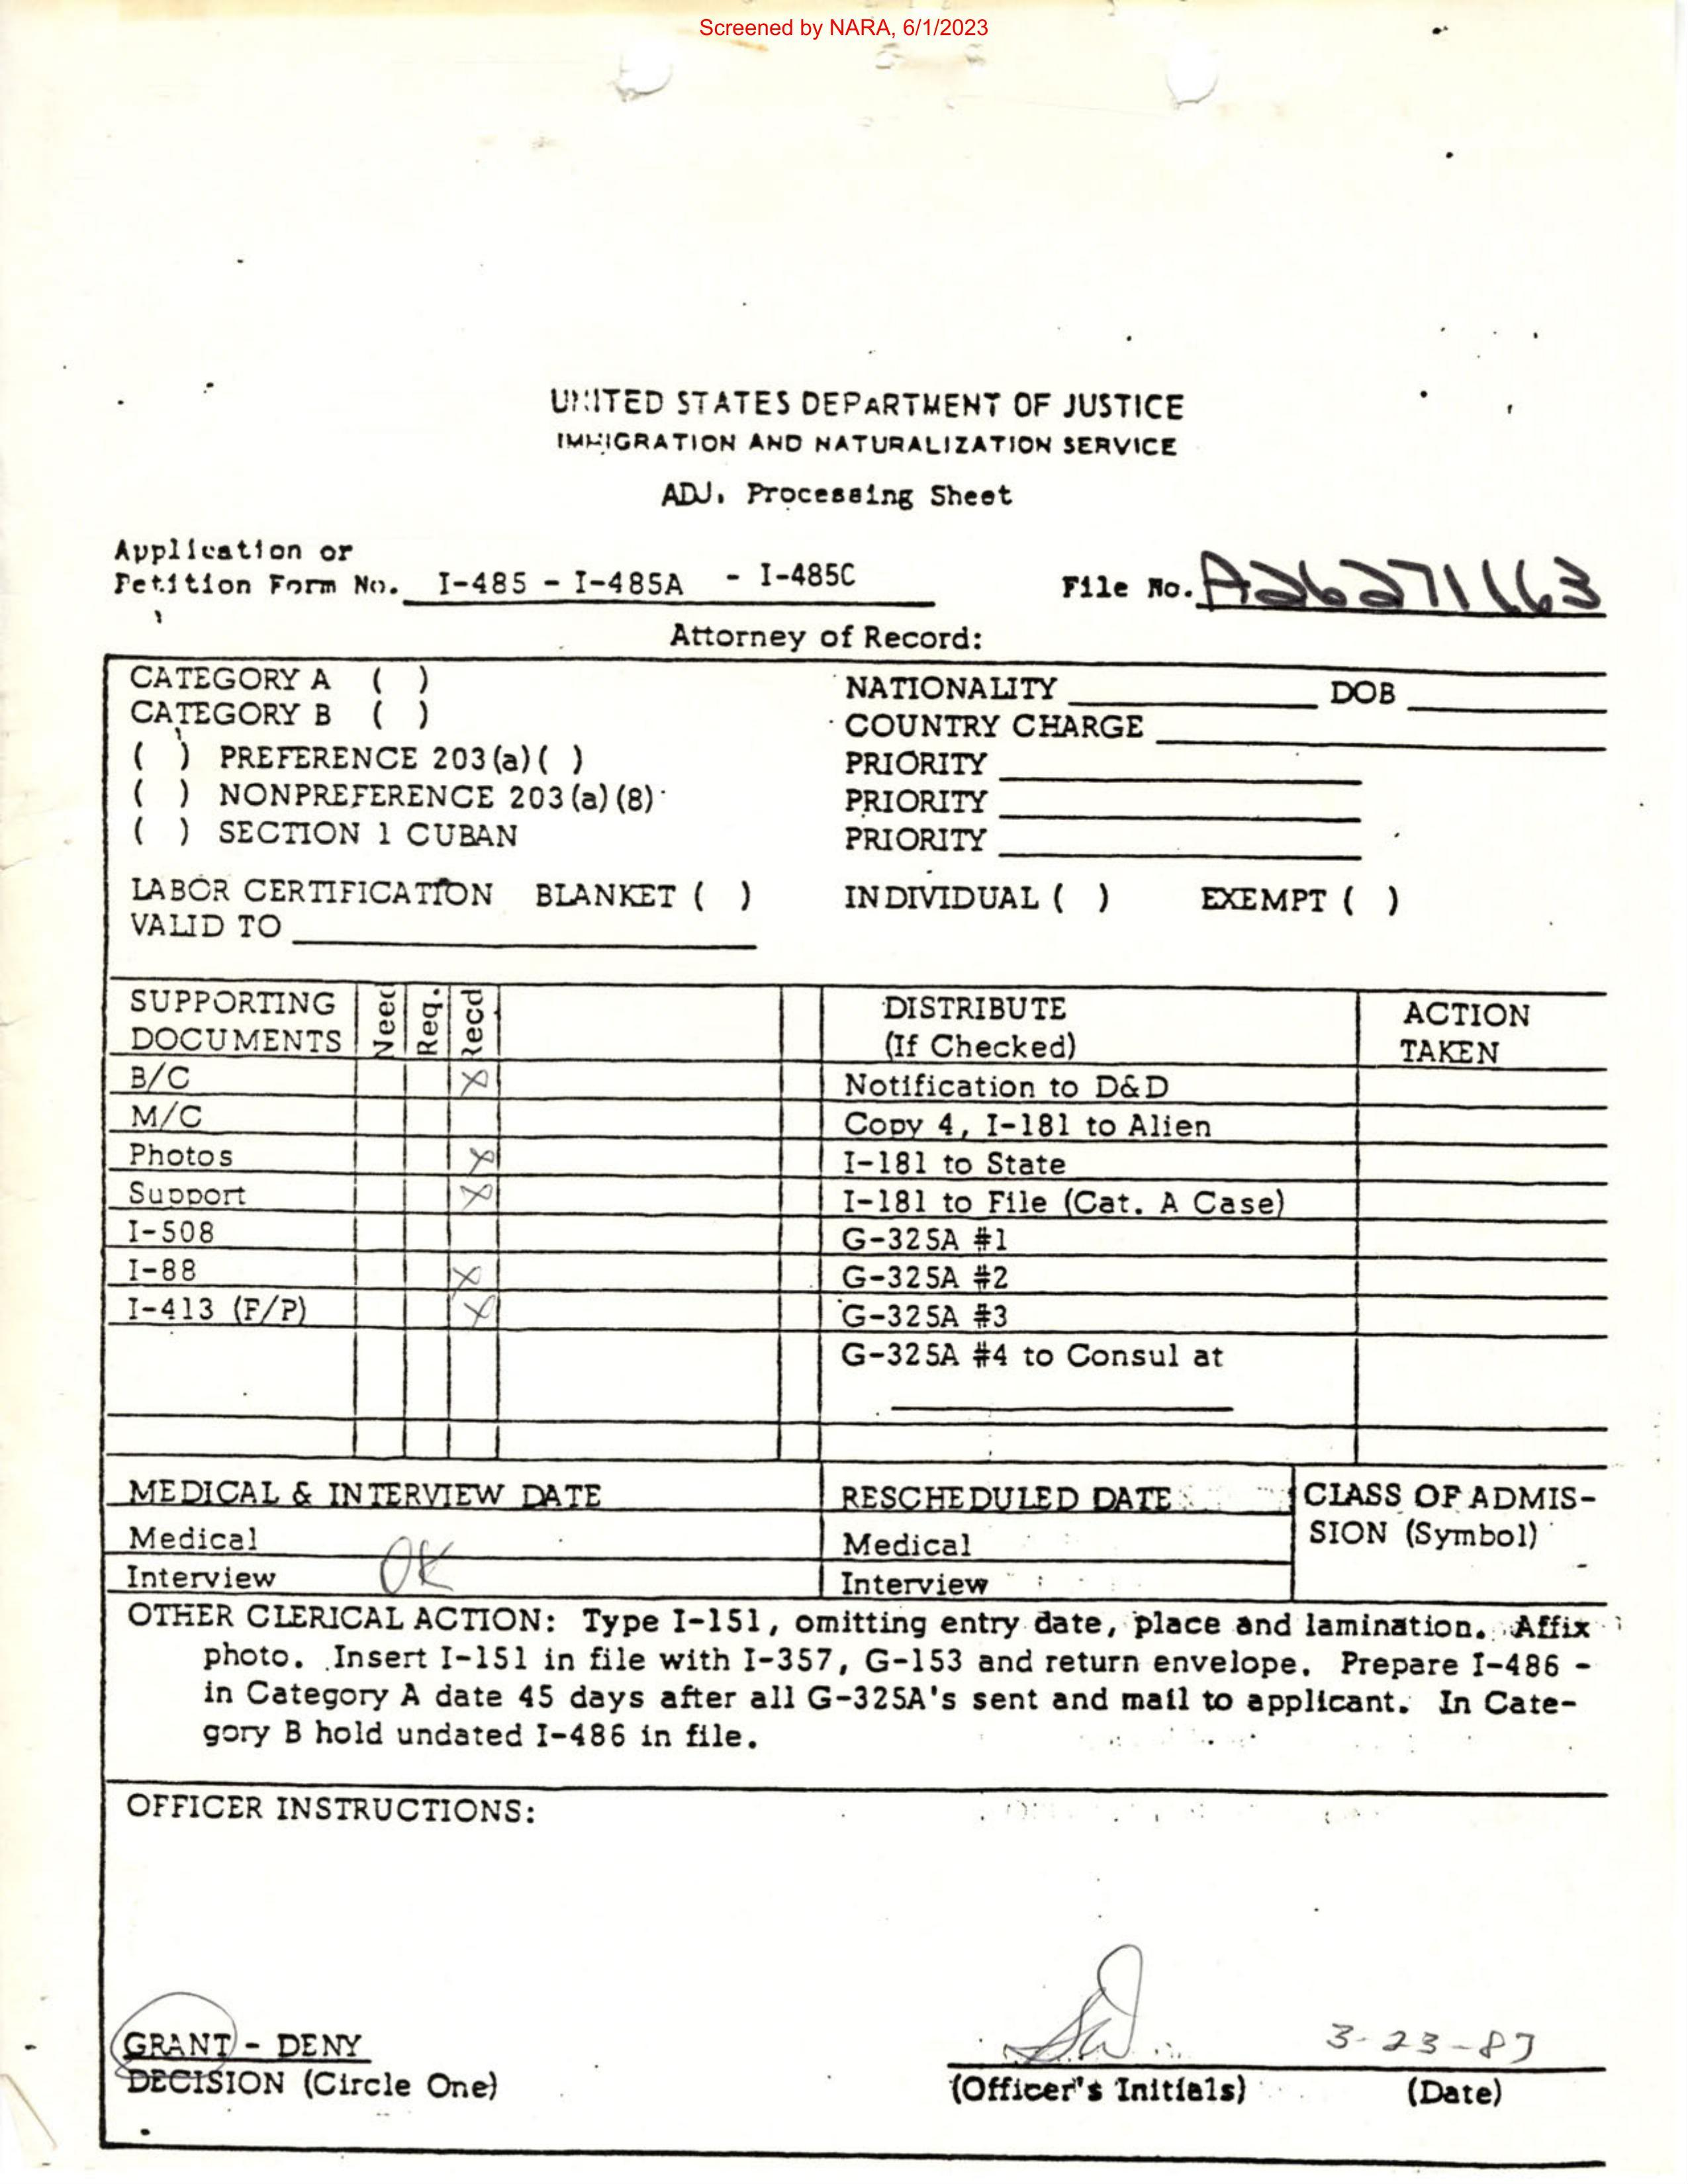 Screened by NARA, 6/1/2023
UNITED STATES DEPARTMENT OF JUSTICE
IMMIGRATION AND NATURALIZATION SERVICE
ADJ. Processing Sheet
Application or
Petition Form No. I-485 - I-485A - I-485C
File No. A26271163
Attorney of Record:
CATEGORY A ( )
CATEGORY B ( )
( ) PREFERENCE 203(a)( )
( ) NONPREFERENCE 203(a)(8)
( ) SECTION 1 CUBAN
NATIONALITY DOB
COUNTRY CHARGE
PRIORITY
PRIORITY
PRIORITY
LABOR CERTIFICATION BLANKET ( ) INDIVIDUAL ( ) EXEMPT ( )
VALID TO
SUPPORTING DOCUMENTS Need Req. Recd
DISTRIBUTE (If Checked)
ACTION TAKEN
B/C X Notification to D&D
M/C Copy 4, I-181 to Alien
Photos X I-181 to State
Support X I-181 to File (Cat. A Case)
I-508 G-325A #1
I-88 X G-325A #2
I-413 (F/P) X G-325A #3
G-325A #4 to Consul at
MEDICAL & INTERVIEW DATE RESCHEDULED DATE CLASS OF ADMIS-
SION (Symbol)
Medical Medical
Interview OK Interview
OTHER CLERICAL ACTION: Type I-151, omitting entry date, place and lamination. Affix
photo. Insert I-151 in file with I-357, G-153 and return envelope. Prepare I-486 -
in Category A date 45 days after all G-325A's sent and mail to applicant. In Cate-
gory B hold undated I-486 in file.
OFFICER INSTRUCTIONS:
GRANT - DENY
DECISION (Circle One)
3-23-87
(Officer's Initials) (Date)